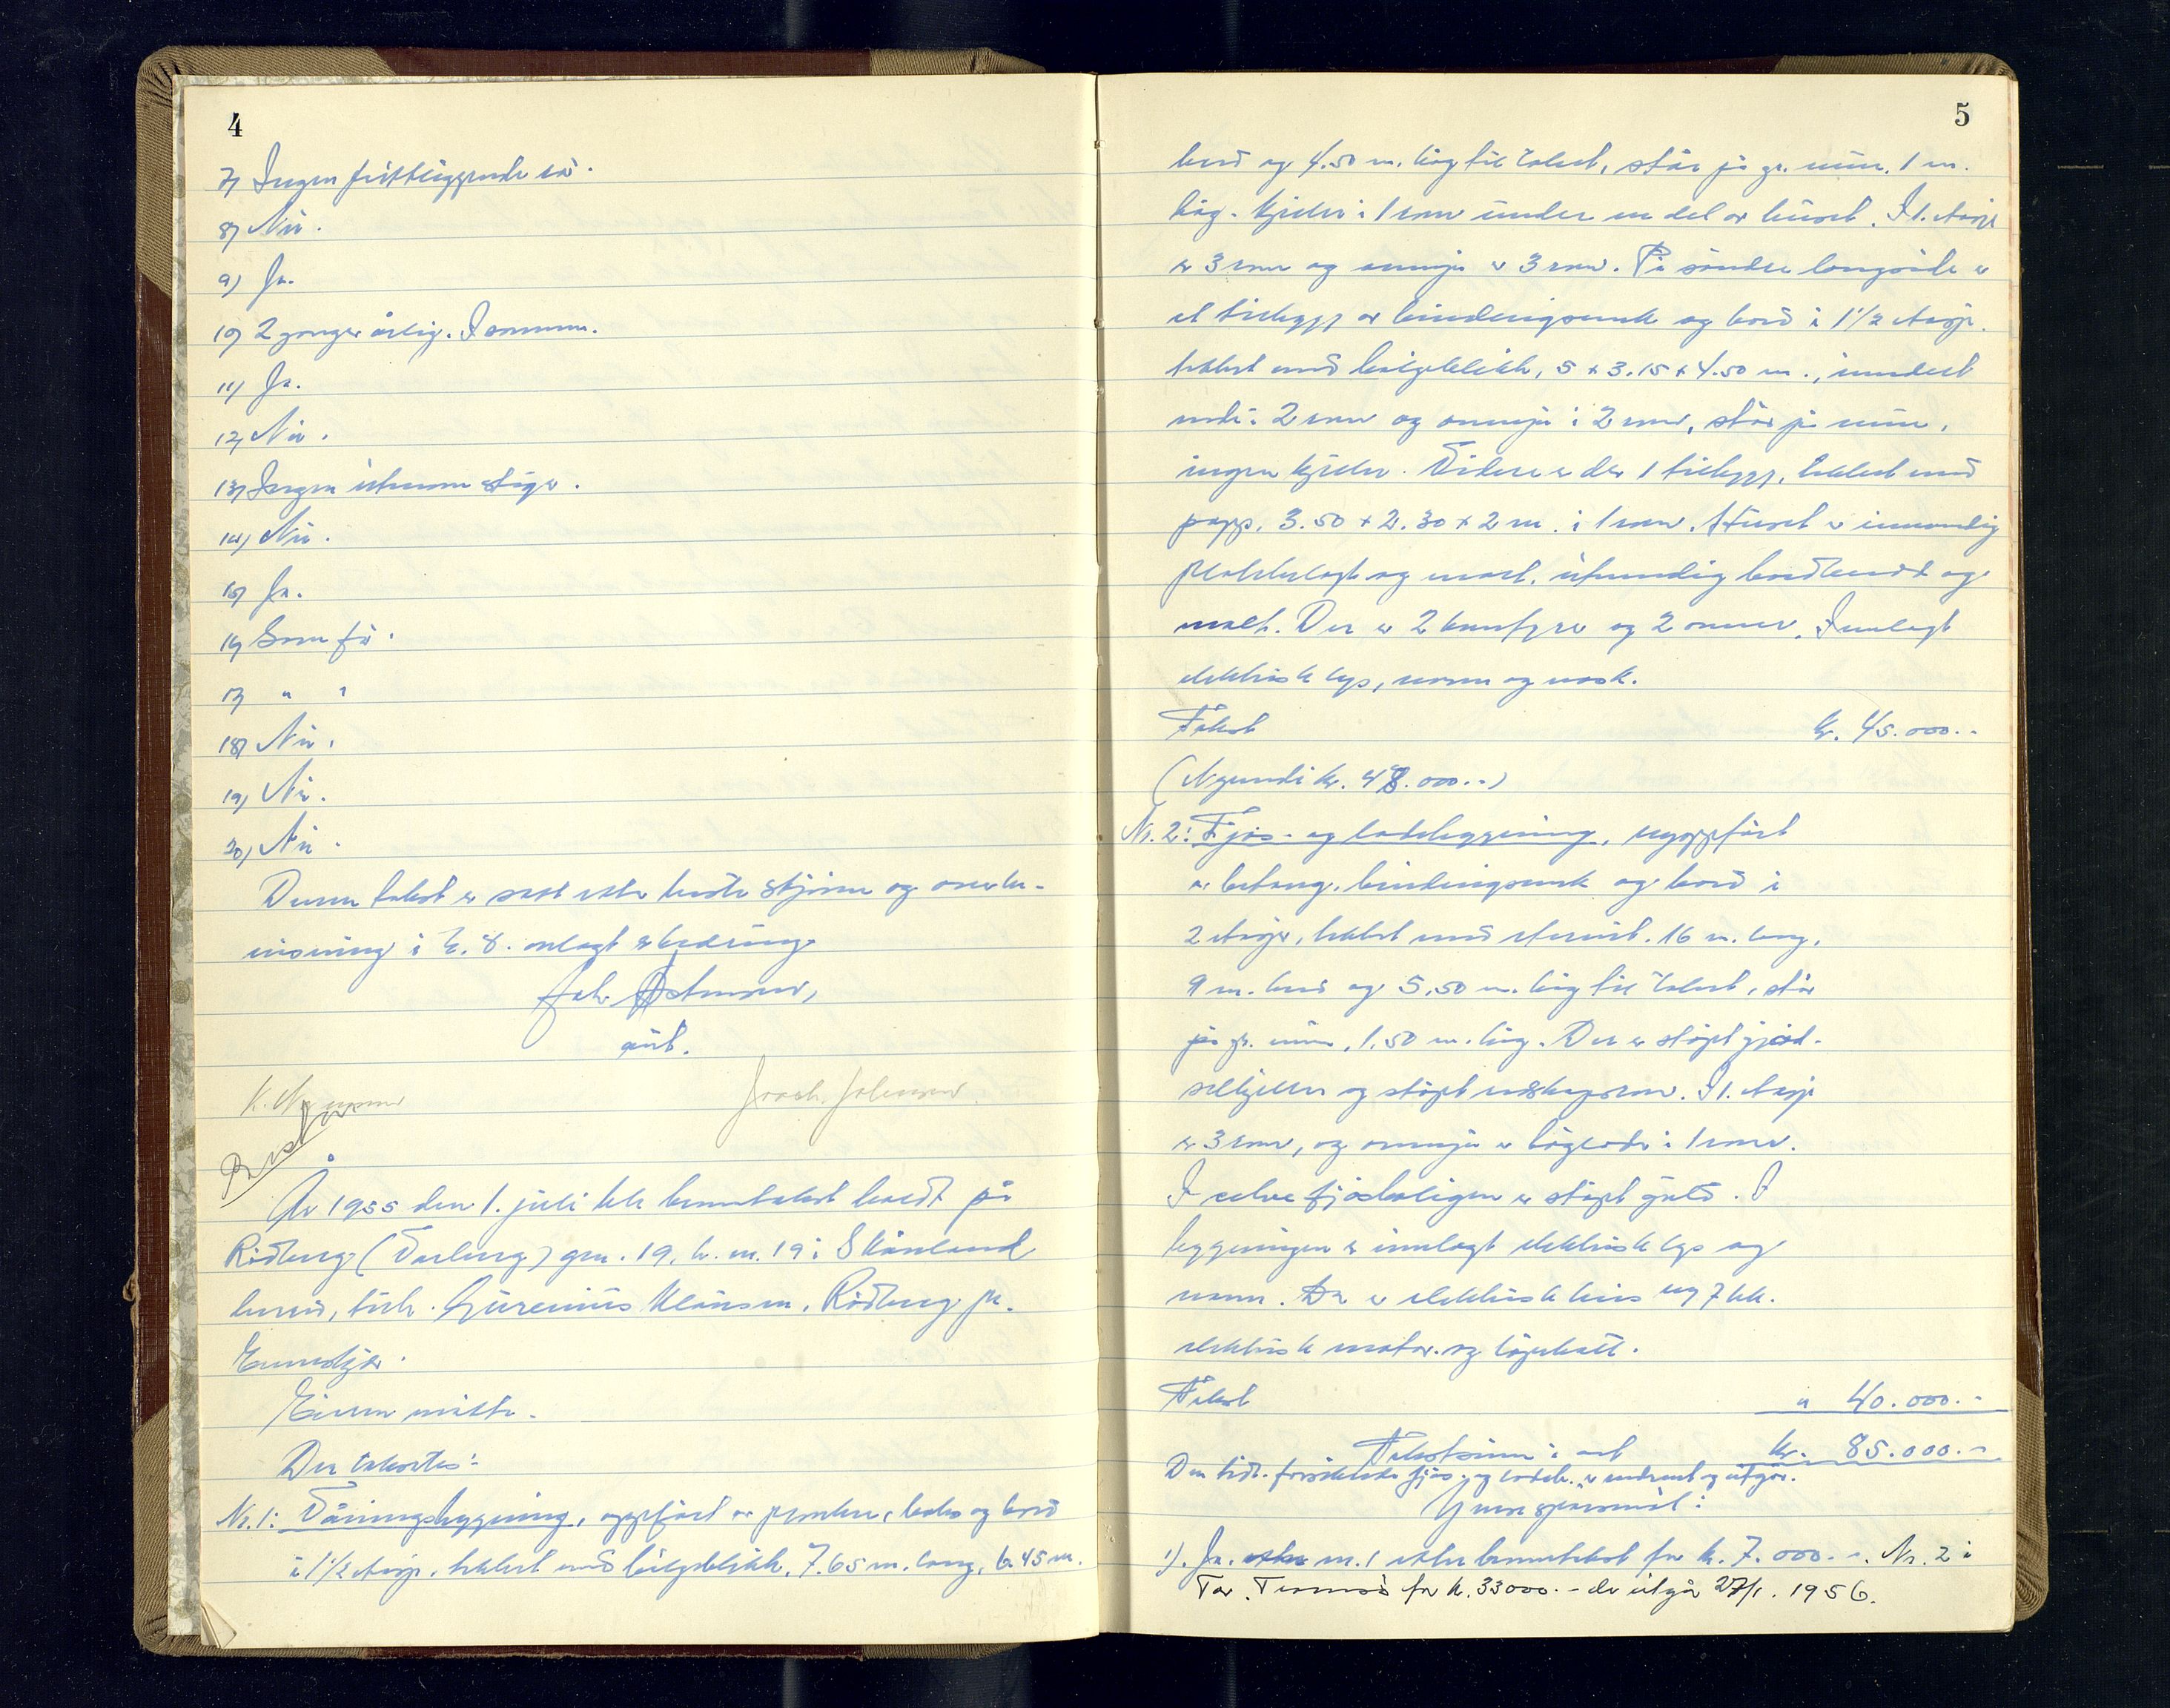 4
7) Ingen frittliggende bår.
8) Nei.
9) Ja.
10) 2 ganger årlig. I sommer.
11) Ja.
12) Nei.
13) Ingen utvern stiger.
14) Nei.
15) Ja.
16) Som før.
17) " "
18) Nei.
19) Nei.
20) Nei.
Denne takst er satt etter beste skjønn og over-
visning i h. t. avlagt forsikring
Joh. Astensen,
aut.
Joach. Johansen
Bustad
År 1955 den 1. juli ble branntakst holdt på
Rödberg (Varberg) gnr. 19, b. nr. 19 i Skånland
herred, tilh. Gjurenius Klausen, Rödberg pr.
Evenskjer.
Eieren møtte.
Der takstes:
Nr. 1: Våningsbygning, oppført av planker, bohs og bord
i 1 1/2 etasje, tekket med bølgeblikk, 7.65 m. lang, 6.45 m.
5
bred og 4.50 m. høg til taket, står på gr. mur, 1 m.
høg. Kjeller i 1 rom under en del av huset. I 1. etasje
er 3 rom og annen er 3 rom. På søndre langside er
et tilbygg av bindingsverk og bord i 1 1/2 etasje.
tekket med bølgeblikk, 5 x 3.15 x 4.50 m., innredet
nede i 2 rom og annen i 2 rom, står på mur,
ingen kjeller. Videre er der 1 tilbygg, tekket med
papp, 3.50 x 2.30 x 2 m. i 1 rom. Huset er innvendig
platebelagt og malt, utvendig bordkledt og
malt. Der er 2 komfyrer og 2 ovner. Innlagt
elektrisk lys, vann og vask.
Takst kr. 45.000.-
(Nyverdi kr. 48.000.-)
Nr. 2: Fjøs- og ladebygning, nyoppført
av betong, bindingsverk og bord i
2 etasjer, tekket med eternit. 16 m. lang,
9 m. bred og 5,50 m. høg til taket, står
på gr. mur, 1.50 m. høg. Der er støpt gjød-
selkjeller og støpt redskapsrom. I 1. etasje
er 3 rom, og annen er høylade i 1 rom.
I selve fjøsboligen er støpt gulv. I
bygningen er innlagt elektrisk lys og
vann. Der er elektrisk heis og 7 hk.
elektrisk motor og høykutt.
Takst " 40.000.-
Takstsum i alt kr. 85.000.-
Den tidl. forsikrede fjøs- og ladeb. er nedrevet og utgår.
Ymse spørsmål:
1). Ja. etter nr. 1 etter branntakst for kr. 7.000.-. Nr. 2 i
Tor. Tromsö for kr. 33000.- de utgår 27/1. 1956.